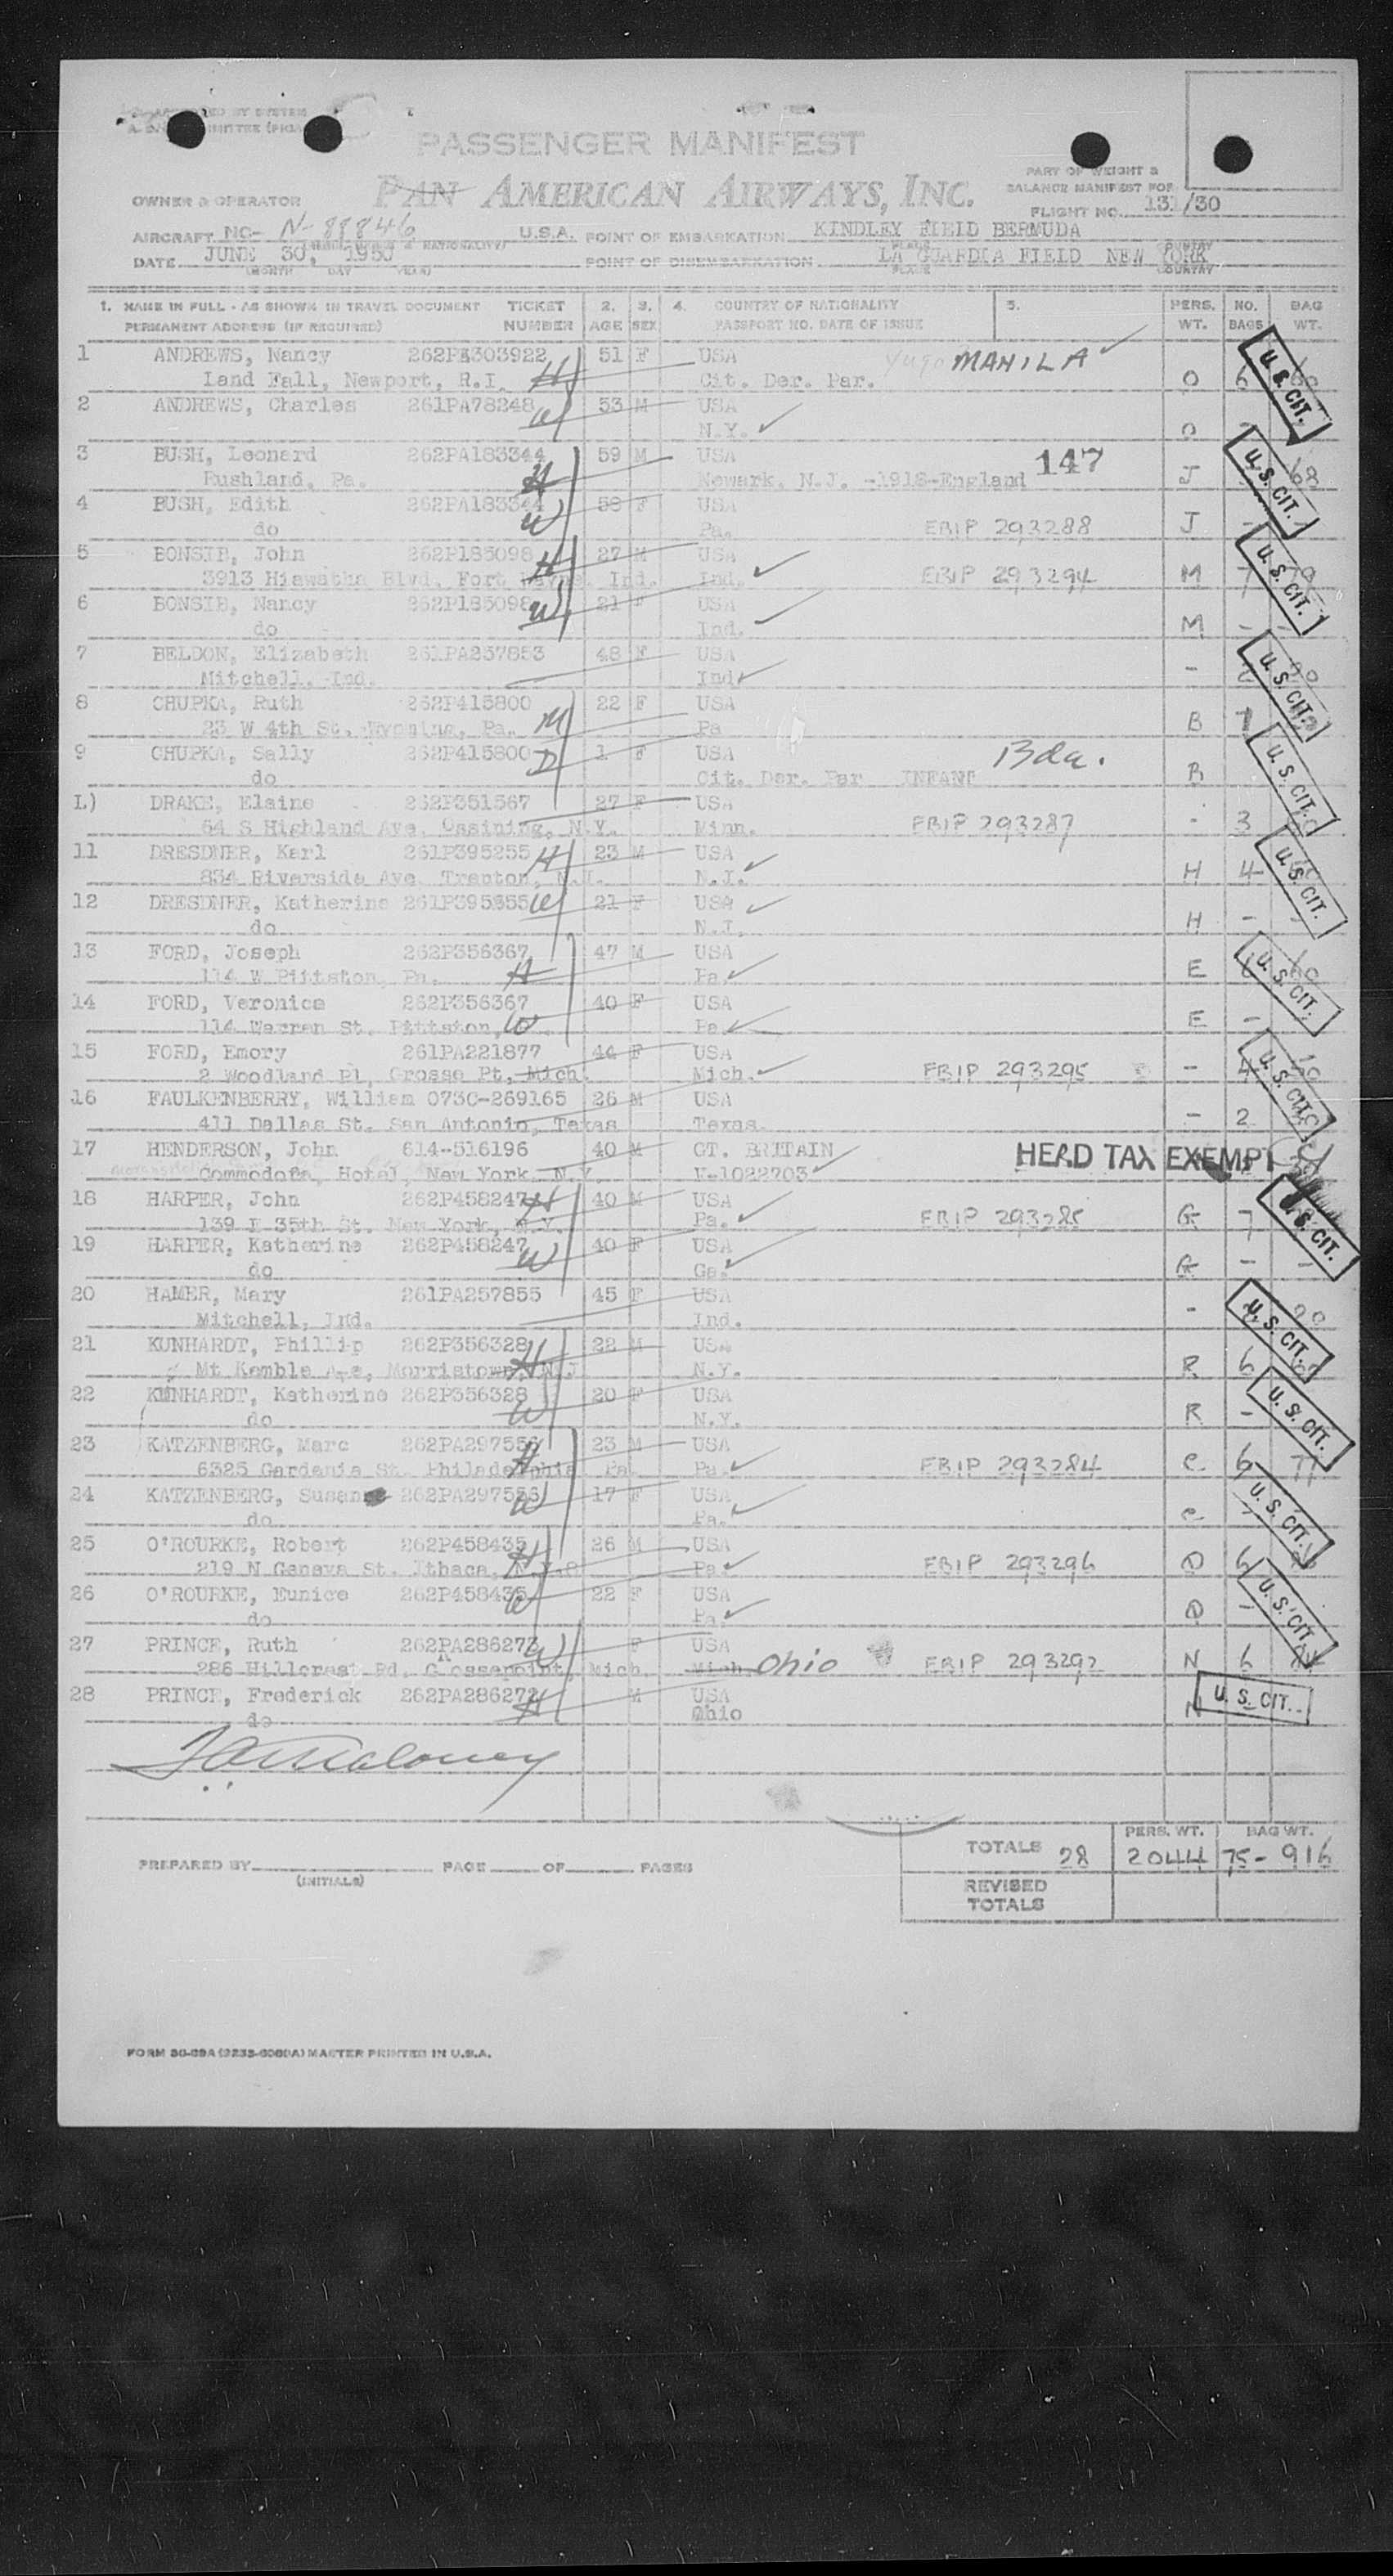 PASSENGER MANIFEST
PAN AMERICAN AIRWAYS, INC.
PART OF WEIGHT &
BALANCE MANIFEST FOR
OWNER & OPERATOR
FLIGHT NO. 131/30
AIRCRAFT NC- N-88846 U.S.A. POINT OF EMBARKATION KINDLEY FIELD BERMUDA
DATE JUNE 30, 1950 POINT OF DISEMBARKATION LA GUARDIA FIELD NEW YORK
(MONTH DAY YEAR) PLACE COUNTRY
1. NAME IN FULL - AS SHOWN IN TRAVEL DOCUMENT TICKET 2. 3. 4. COUNTRY OF NATIONALITY 5. PERS. NO. BAG
PERMANENT ADDRESS (IF REQUIRED) NUMBER AGE SEX PASSPORT NO. DATE OF ISSUE WT. BAGS WT.
1 ANDREWS, Nancy 262PA303922 51 F USA MANILA
Land Fall, Newport, R.I. H Cit. Der. Par. O 6 U.S. CIT.
2 ANDREWS, Charles 261PA78248 53 M USA
W N.Y. O
3 BUSH, Leonard 262PA183344 59 M USA 147
Rushland, Pa. H Newark, N.J. -1918-England J 68 U.S. CIT.
4 BUSH, Edith 262PA183344 58 F USA
do W Pa. EBIP 293288 J -
5 BONSIB, John 262P185098 27 M USA
3913 Hiawatha Blvd. Fort Wayne, Ind. H Ind. EBIP 293294 M 7 79 U.S. CIT.
6 BONSIB, Nancy 262P185098 21 F USA
do W Ind. M -
7 BELDON, Elizabeth 261PA257853 48 F USA
Mitchell, Ind. Ind. - 2 20 U.S. CIT.
8 CHUPKA, Ruth 262P415800 22 F USA
23 W 4th St. Wyoming, Pa. M Pa B 7
9 CHUPKA, Sally 262P415800 1 F USA Bda.
do D Cit. Der. Par INFANT B U.S. CIT.
L) DRAKE, Elaine 262P351567 27 F USA
64 S Highland Ave. Ossining, N.Y. Minn. EBIP 293287 - 3
11 DRESDNER, Karl 261P395255 23 M USA
834 Riverside Ave. Trenton, N.J. H N.J. H 4 U.S. CIT.
12 DRESDNER, Katherine 261P395355 21 F USA
do W N.J. H -
13 FORD, Joseph 262P356367 47 M USA
114 W Pittston, Pa. H Pa. E 6 60 U.S. CIT.
14 FORD, Veronica 262P356367 40 F USA
114 Warren St. Pittston, W Pa. E -
15 FORD, Emory 261PA221877 44 F USA
2 Woodland Pl, Grosse Pt, Mich. Mich. EBIP 293295 - 4 U.S. CIT.
16 FAULKENBERRY, William 073C-269165 26 M USA
411 Dallas St. San Antonio, Texas Texas. - 2
17 HENDERSON, John 614-516196 40 M GT. BRITAIN HEAD TAX EXEMPT
Commodore, Hotel, New York, N.Y. V-1022703
18 HARPER, John 262P458247 H 40 M USA
139 E 35th St. New York, N.Y. Pa. EBIP 293285 G 7 U.S. CIT.
19 HARPER, Katherine 262P458247 40 F USA
do W Ga. G - -
20 HAMER, Mary 261PA257855 45 F USA
Mitchell, Ind. Ind. - 20 U.S. CIT.
21 KUNHARDT, Phillip 262P356328 22 M USA
Mt Kemble Ave, Morristown, N.J H N.Y. R 6
22 KUNHARDT, Katherine 262P356328 20 F USA
do W N.Y. R - U.S. CIT.
23 KATZENBERG, Marc 262PA297556 23 M USA
6325 Gardenia St. Philadelphia Pa H Pa. EBIP 293284 C 6 77
24 KATZENBERG, Susan 262PA297556 17 F USA
do W Pa. C U.S. CIT.
25 O'ROURKE, Robert 262P458435 26 M USA
219 N Geneva St. Ithaca, N.Y. H Pa EBIP 293296 D 6
26 O'ROURKE, Eunice 262P458435 22 F USA
do W Pa. D - U.S. CIT.
27 PRINCE, Ruth 262PA286273 W F USA
286 Hillcrest Rd. Grossepoint, Mich. Mich. Ohio EBIP 293292 N 6
28 PRINCE, Frederick 262PA286272 M USA
do H Ohio N U.S. CIT.
TOTALS 28 PERS. WT. 2044 BAG WT. 75- 916
PREPARED BY PAGE OF PAGES
(INITIALS)
REVISED
TOTALS
FORM MASTER PRINTED IN U.S.A.